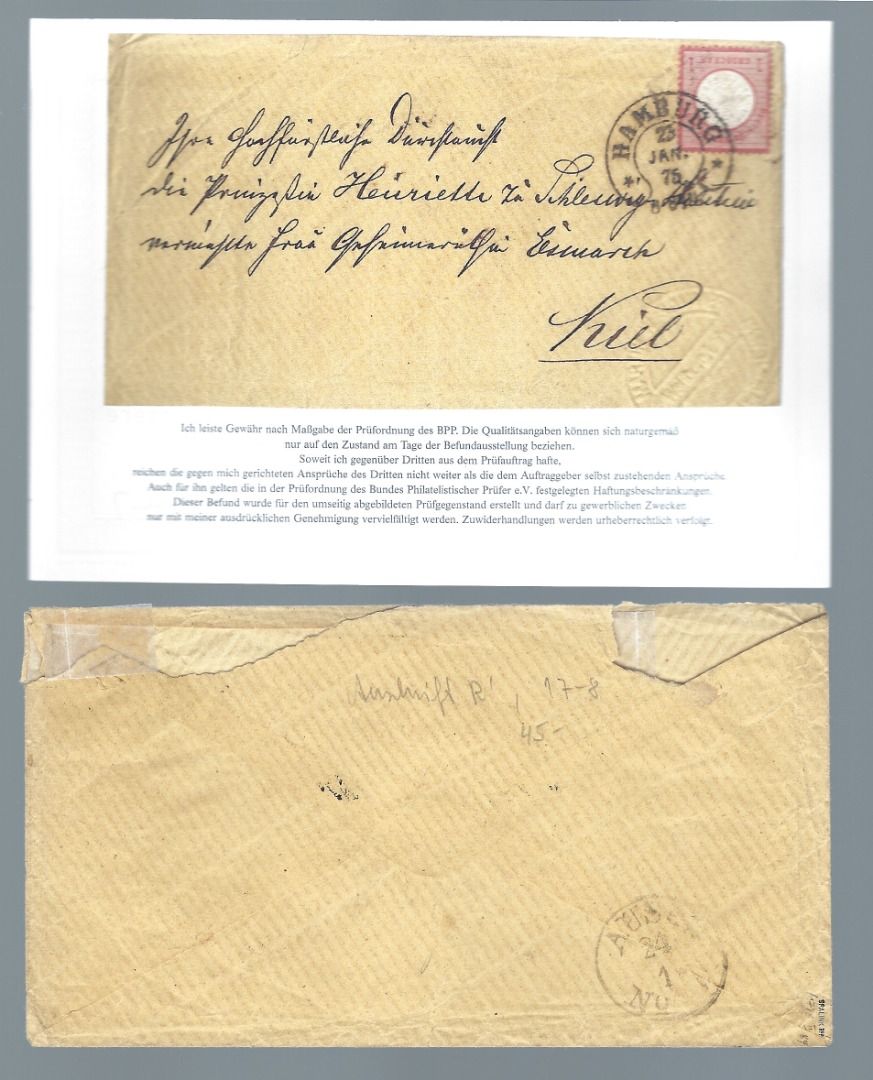 HAMBURG
23
JAN.
75
Ihre Hochfürstliche Durchlaucht
die Prinzeßin Henriette zu Schleswig-Holstein
vermählte Frau Geheimeräthin Esmarch
Kiel
Ich leiste Gewähr nach Maßgabe der Prüfordnung des BPP. Die Qualitätsangaben können sich naturgemäß
nur auf den Zustand am Tage der Befundausstellung beziehen.
Soweit ich gegenüber Dritten aus dem Prüfauftrag hafte,
reichen die gegen mich gerichteten Ansprüche des Dritten nicht weiter als die dem Auftraggeber selbst zustehenden Ansprüche.
Auch für ihn gelten die in der Prüfordnung des Bundes Philatelistischer Prüfer e.V. festgelegten Haftungsbeschränkungen.
Dieser Befund wurde für den umseitig abgebildeten Prüfgegenstand erstellt und darf zu gewerblichen Zwecken
nur mit meiner ausdrücklichen Genehmigung vervielfältigt werden. Zuwiderhandlungen werden urheberrechtlich verfolgt.
17-8
45.-
24
1
No